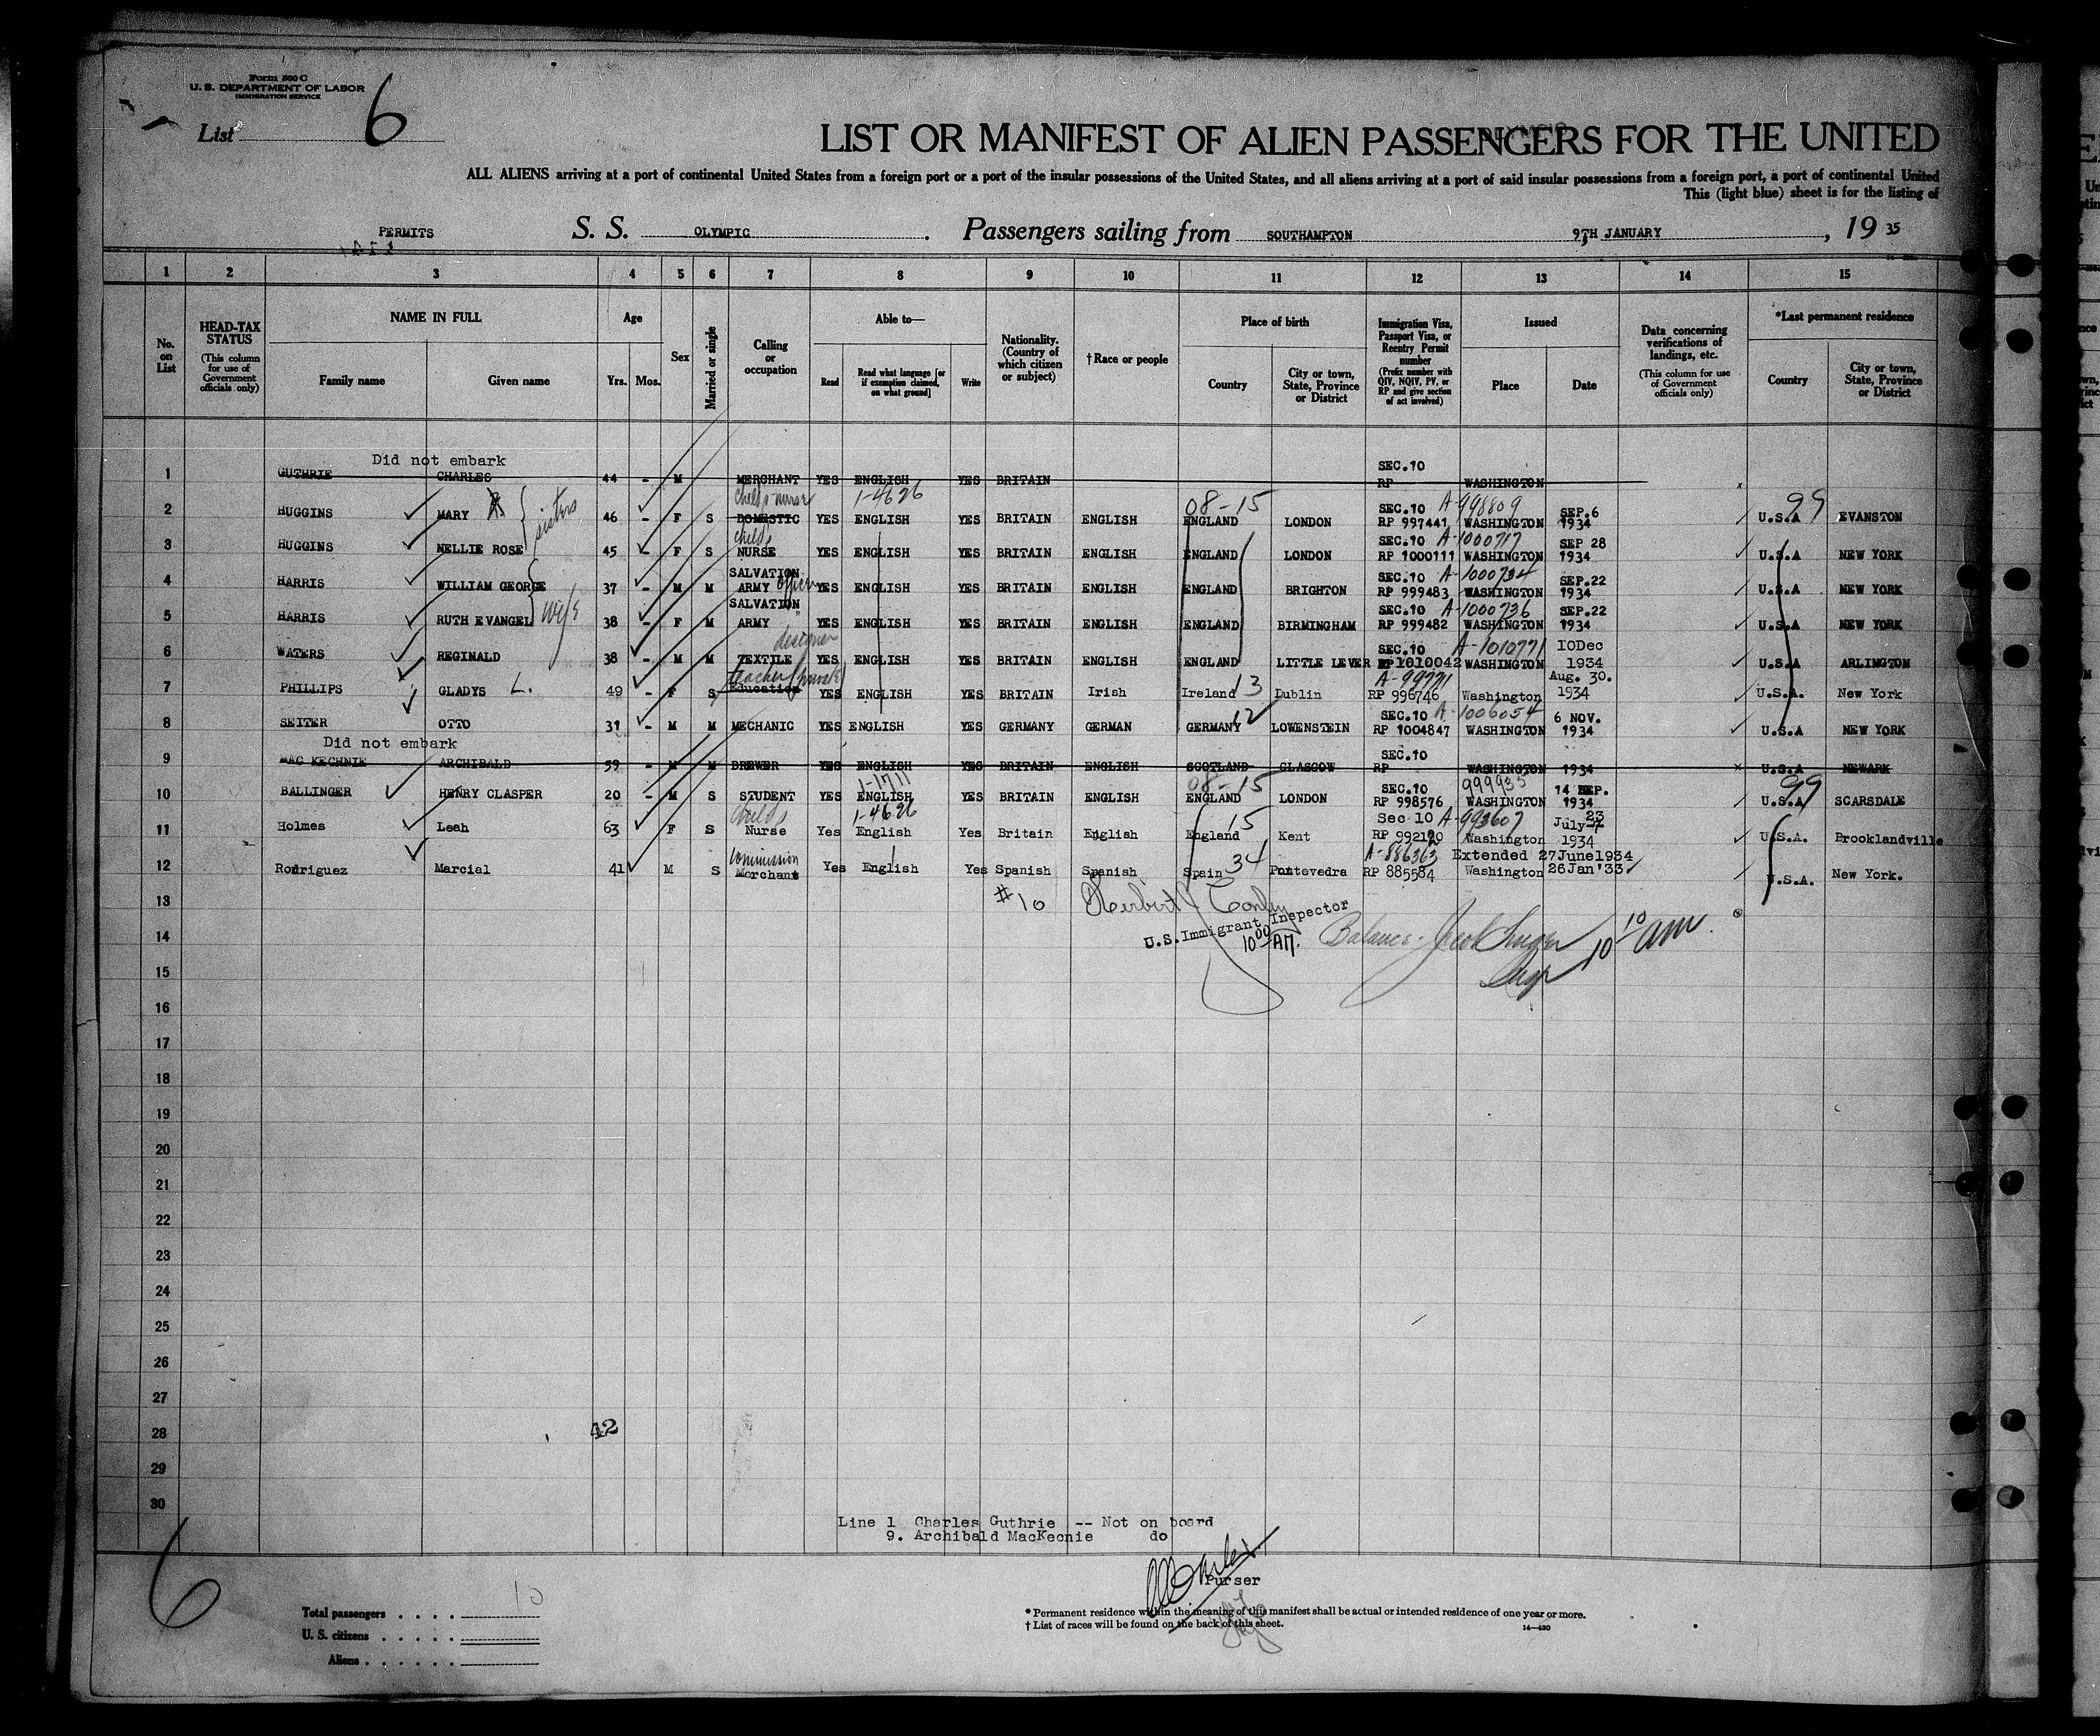 Form 500 C
U. S. DEPARTMENT OF LABOR
IMMIGRATION SERVICE
List 6
LIST OR MANIFEST OF ALIEN PASSENGERS FOR THE UNITED
ALL ALIENS arriving at a port of continental United States from a foreign port or a port of the insular possessions of the United States, and all aliens arriving at a port of said insular possessions from a foreign port, a port of continental United
This (light blue) sheet is for the listing of
PERMITS S. S. OLYMPIC. Passengers sailing from SOUTHAMPTON 9TH JANUARY, 19 35
1 2 3 4 5 6 7 8 9 10 11 12 13 14 15
No. on List
HEAD-TAX STATUS (This column for use of Government officials only)
NAME IN FULL Family name Given name
Age Yrs. Mos.
Sex
Married or single
Calling or occupation
Able to— Read Read what language [or if exemption claimed, on what ground] Write
Nationality. (Country of which citizen or subject)
†Race or people
Place of birth Country City or town, State, Province or District
Immigration Visa, Passport Visa, or Reentry Permit number (Prefix number with QIV, NQIV, PV, or RP and give section of act involved)
Issued Place Date
Data concerning verifications of landings, etc. (This column for use of Government officials only)
*Last permanent residence Country City or town, State, Province or District
Did not embark
1 GUTHRIE CHARLES 44 - M MERCHANT YES ENGLISH YES BRITAIN SEC.10 RP WASHINGTON
child's nurse 1-4626 08-15 A-998809 99
2 HUGGINS MARY sisters 46 - F S DOMESTIC YES ENGLISH YES BRITAIN ENGLISH ENGLAND LONDON SEC.10 RP 997441 WASHINGTON SEP.6 1934 U.S.A EVANSTON
child's A-1000717
3 HUGGINS NELLIE ROSE 45 - F S NURSE YES ENGLISH YES BRITAIN ENGLISH ENGLAND LONDON SEC.10 RP 1000111 WASHINGTON SEP 28 1934 U.S.A NEW YORK
A-1000734
4 HARRIS WILLIAM GEORGE 37 - M M SALVATION ARMY officer YES ENGLISH YES BRITAIN ENGLISH ENGLAND BRIGHTON SEC.10 RP 999483 WASHINGTON SEP.22 1934 U.S.A NEW YORK
A-1000736
5 HARRIS RUTH EVANGEL wife 38 - F M SALVATION ARMY " YES ENGLISH YES BRITAIN ENGLISH ENGLAND BIRMINGHAM SEC.10 RP 999482 WASHINGTON SEP.22 1934 U.S.A NEW YORK
designer A-1010771
6 WATERS REGINALD 38 - M M TEXTILE YES ENGLISH YES BRITAIN ENGLISH ENGLAND LITTLE LEVER SEC.10 RP 1010042 WASHINGTON 10Dec 1934 U.S.A ARLINGTON
teacher (private) A-99771
7 PHILLIPS GLADYS L. 49 - F S Education YES ENGLISH YES BRITAIN Irish Ireland 13 Dublin RP 996746 Washington Aug. 30. 1934 U.S.A. New York
A-1006054
8 SEITER OTTO 31 - M M MECHANIC YES ENGLISH YES GERMANY GERMAN GERMANY 12 LOWENSTEIN SEC.10 RP 1004847 WASHINGTON 6 NOV. 1934 U.S.A NEW YORK
Did not embark
9 MAC KECHNIE ARCHIBALD 59 - M M BREWER YES ENGLISH YES BRITAIN ENGLISH SCOTLAND GLASGOW SEC.10 RP WASHINGTON 1934 U.S.A NEWARK
1-1711 08-15 999935 99
10 BALLINGER HENRY CLASPER 20 - M S STUDENT YES ENGLISH YES BRITAIN ENGLISH ENGLAND LONDON SEC.10 RP 998576 WASHINGTON 14 SEP. 1934 U.S.A SCARSDALE
child's 1-4626 15 A-993607 23
11 Holmes Leah 63 F S Nurse Yes English Yes Britain English England Kent Sec 10 RP 992120 Washington July 1934 U.S.A. Brooklandville
commission 34 A-886363 Extended 27June1934
12 Rodriguez Marcial 41 M S Merchant Yes English Yes Spanish Spanish Spain Pontevedra RP 885584 Washington 26Jan'33 U.S.A. New York.
13 #10 Herbert
U.S. Immigrant Inspector
14 10 00 AM. Balance- 10 10 am.
15 Insp
16
17
18
19
20
21
22
23
24
25
26
27
28 42
29
30
Line 1 Charles Guthrie -- Not on board
9. Archibald MacKecnie do
Purser
6
Total passengers . . . . 10
U. S. citizens . . . . .
Aliens . . . . . .
* Permanent residence within the meaning of this manifest shall be actual or intended residence of one year or more.
† List of races will be found on the back of this sheet.
14—430